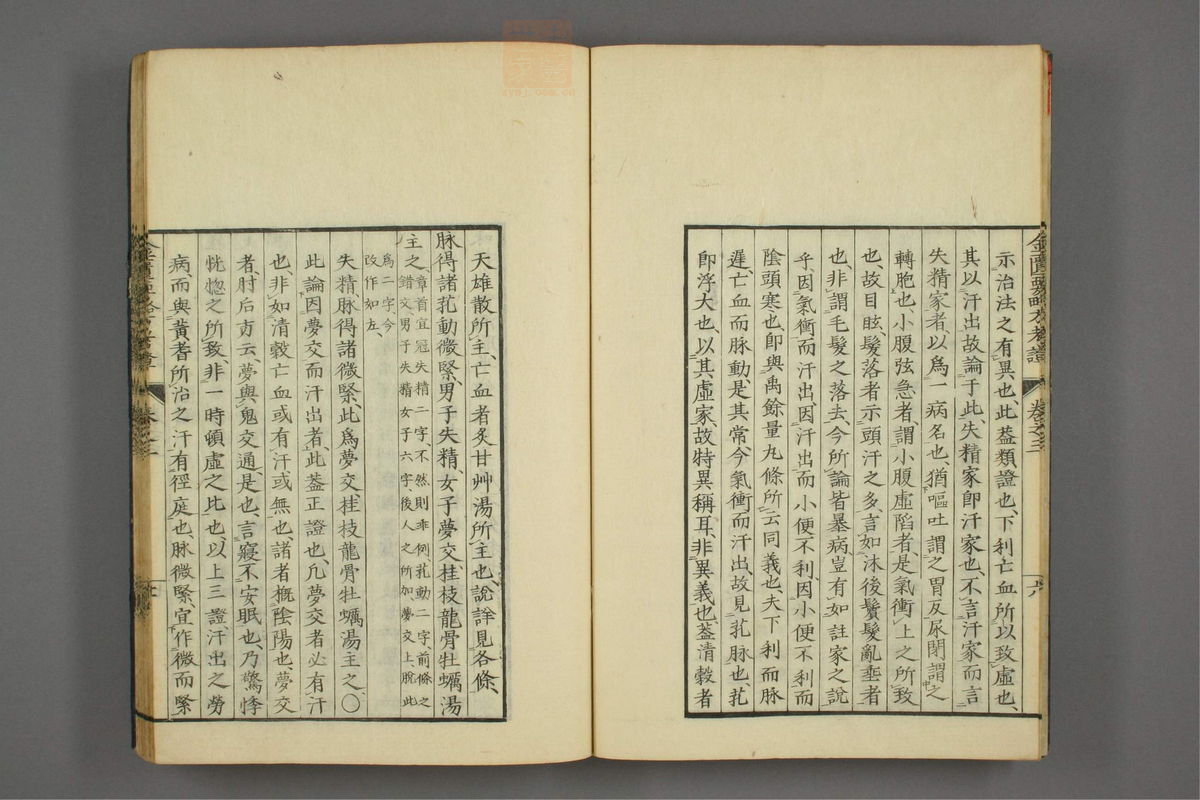 示治法之有異也、此葢類證也、下利亡血、所以致虛也、
其以汗出故論于此、失精家即汗家也、不言汗家而言
失精家者、以爲一病名也、猶嘔吐謂之胃反尿閉謂之
轉胞也、小腹弦急者、謂小腹虛陷者、是氣衝上之所致
也、故目眩、髮落者示頭汗之多、言如沐後鬢髮亂垂者
也、非謂毛髮之落去、今所論皆暴病、豈有如註家之說
乎、因氣衝而汗出、因汗出而小便不利、因小便不利而
陰頭寒也、即與禹餘量丸條所云同義也、夫下利而脉
遲、亡血而脉動、是其常、今氣衝而汗出、故見芤脉也、芤
即浮大也、以其虛家、故特異稱耳、非異義也、葢清穀者
天雄散所主、亡血者炙甘艸湯所主也、說詳見各條、
脉得諸芤動微緊、男子失精、女子夢交、桂枝龍骨牡蠣湯
主之、章首宜冠失精二字、不然則乖例、芤動二字、前條之
錯交、男子失精女子六字、後人之所加、夢交上、脫此
爲二字、今
改作如左、
失精、脉得諸微緊、此爲夢交、桂枝龍骨牡蠣湯主之、〇
此論因夢交而汗出者、此葢正證也、凡夢交者必有汗
也、非如清穀亡血或有汗或無也、諸者概陰陽也、夢交
者、肘后方云、夢與鬼交通是也、言寢不安眠也、乃驚悸
恍惚之所致、非一時頓虛之比也、以上三證、汗出之勞
病、而與黃耆所治之汗有徑庭也、脉微緊、宜作微而緊